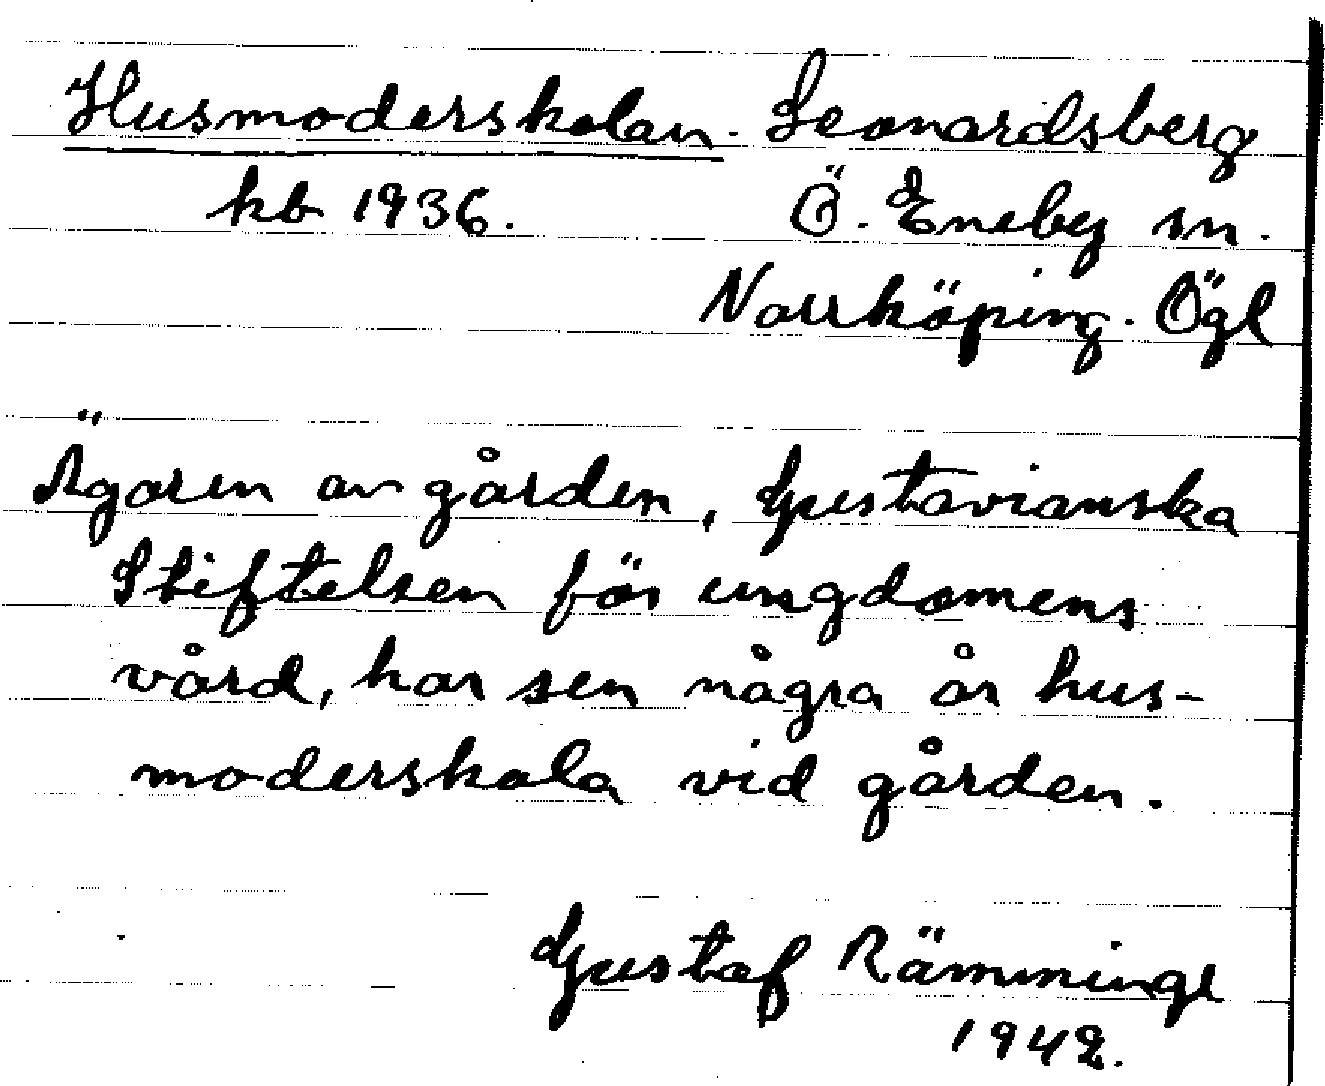 Husmoderskolan. Leonardsberg
kb 1936. Ö. Eneby sn.
Norrköping. Ögl
Ägaren av gården, Gustavianska
Stiftelsen för ungdomens
vård, har sen några år hus-
moderskola vid gården.
Gustaf Ramminge
1942.